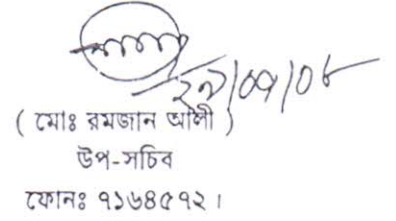 ২৯/০৭/০৮
( মোঃ রমজান আলী )
উপ-সচিব
ফোনঃ ৭১৬৪৫৭২।